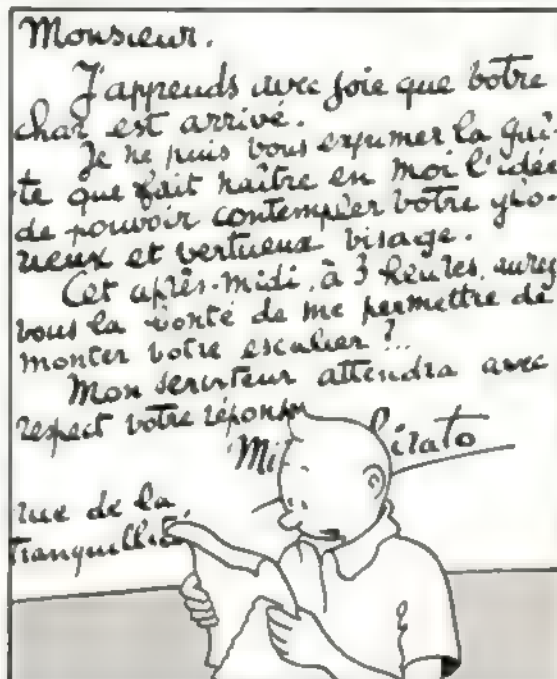 Monsieur.
J'apprends avec joie que votre
char est arrivé.
Je ne puis vous exprimer la gaî-
té que fait naître en moi l'idée
de pouvoir contempler votre glo-
rieux et vertueux visage.
Cet après-midi, à 3 heures, aurez
vous la bonté de me permettre de
monter votre escalier ?..
Mon serviteur attendra avec
respect votre réponse
rue de la
Tranquillité